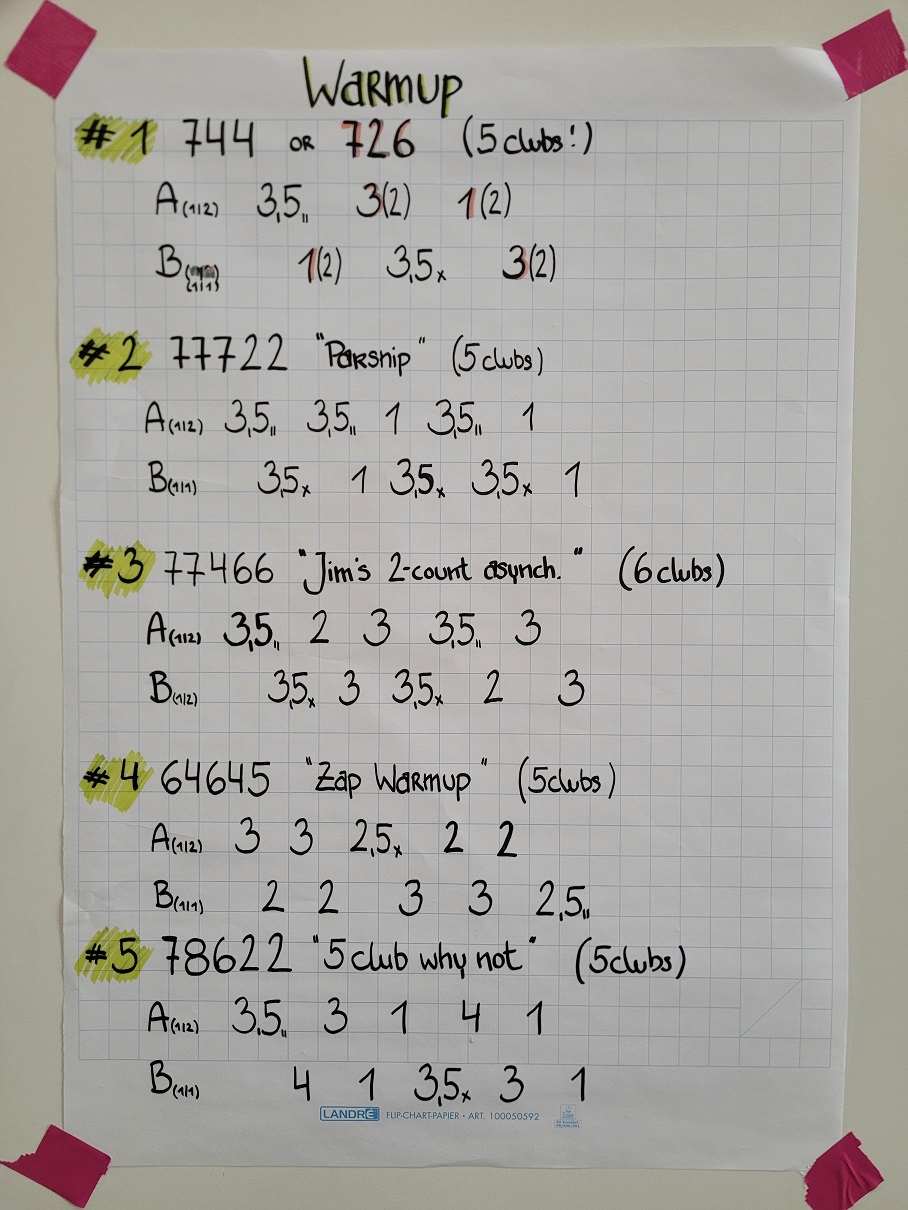 WARMUP
#1 744 OR 726 (5 clubs!)
A(1|2) 3,5॥ 3(2) 1(2)
B(1|1) 1(2) 3,5x 3(2)
#2 77722 "Parsnip" (5 clubs)
A(1|2) 3,5॥ 3,5॥ 1 3,5॥ 1
B(1|1) 3,5x 1 3,5x 3,5x 1
#3 77466 "Jim's 2-count asynch." (6 clubs)
A(1|2) 3,5॥ 2 3 3,5॥ 3
B(1|2) 3,5x 3 3,5x 2 3
#4 64645 "Zap Warmup" (5 clubs)
A(1|2) 3 3 2,5x 2 2
B(1|1) 2 2 3 3 2,5॥
#5 78622 "5 club why not" (5 clubs)
A(1|2) 3,5॥ 3 1 4 1
B(1|1) 4 1 3,5x 3 1
LANDRÉ FLIP-CHART-PAPIER • ART. 100050592